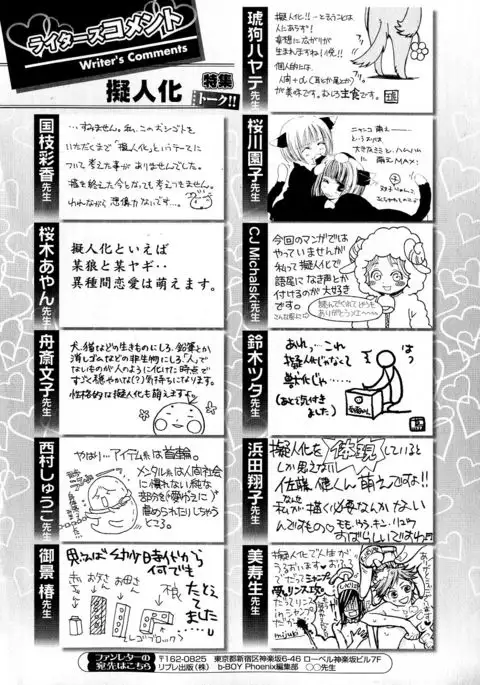 ライターズコメント
Writer's Comments
擬人化
特集
トーク!!
琥狗ハヤテ先生
擬人化!!ーとろうことは
人にあらず!
妄想に広がりが
生まれますねい悦!!
個人的には
人間+α(耳とか尾とか)
が美味です。むしろ主食です。
国枝彩香先生
…すみません。私、このおシゴトを
いただくまで「擬人化」というテーマに
ついて考えた事がありませんでした。
描き終えた今もなお考えつきません。
われながら想像力ないです…。
桜川園子先生
ニャンコ萌え
大きなミミと、ハムハムに
萌えMAX!
桜木あやん先生
擬人化といえば
某狼と某ヤギ‥
異種間恋愛は萌えます。
CJ Michalski先生
今回のマンガでは
やっていませんが
私って擬人化で
語尾になき声とか
付けるのが大好き
です。
読んでくれてどうも
ありがとうメエ〜〜
舟斎文子先生
犬、猫などの生きものにしろ、鉛筆とか
消しゴムなどの非生物にしろ、「人」で
ないものが人のように化けた時点で
すごく穏やかな(?)気持ちになります。
性格的な擬人化も萌えます
鈴木ツタ先生
あれ…これ
擬人化じゃなくて
獣化じゃ…
(あとで気付き
ました)
はっ
西村しゅうこ先生
やはり…アイテム系は首輪。
メンタル系は人間社会
に慣れない純な
部分を(愛ゆえに)
虐められたりしちゃう
ところ。
浜田翔子先生
擬人化を
しているとしか思えない
佐藤健くん萌えですよ!!
私なんかが描く必要なんかない
んですもの
御景椿先生
思えば幼少時代から
何でも
たとえ
てました…
お父さん
お母さん
娘
レゴブロック
美寿生先生
擬人化で人生が
うるおいます。
だってシャンプー
とリンスで
mijuki
ファンレターの
宛先はこちら
〒162-0825 東京都新宿区神楽坂6-46 ローベル神楽坂ビル7F
リブレ出版(株) b-BOY Phoenix編集部 〇〇先生